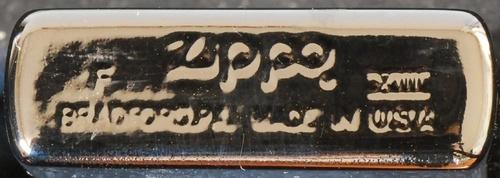 F Zippo XIII
BRADFORD, PA. MADE IN U.S.A.